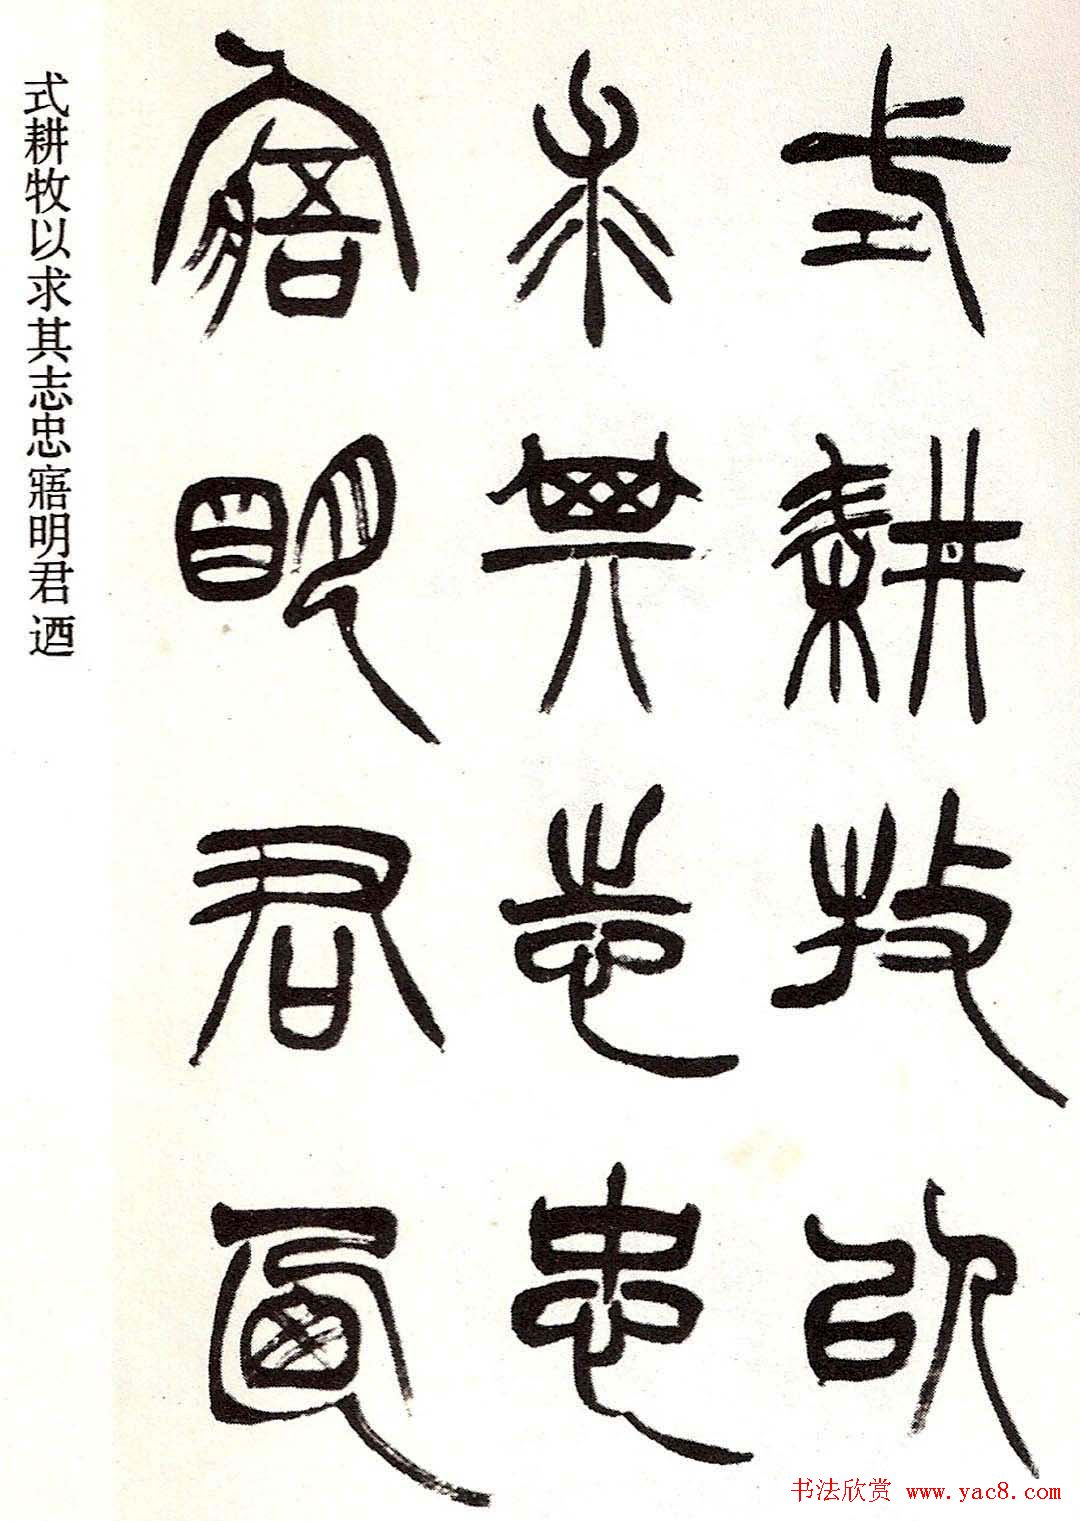 式耕牧以
求其志忠
寤明君迺
式耕牧以求其志忠寤明君迺
书法欣赏 www.yac8.com